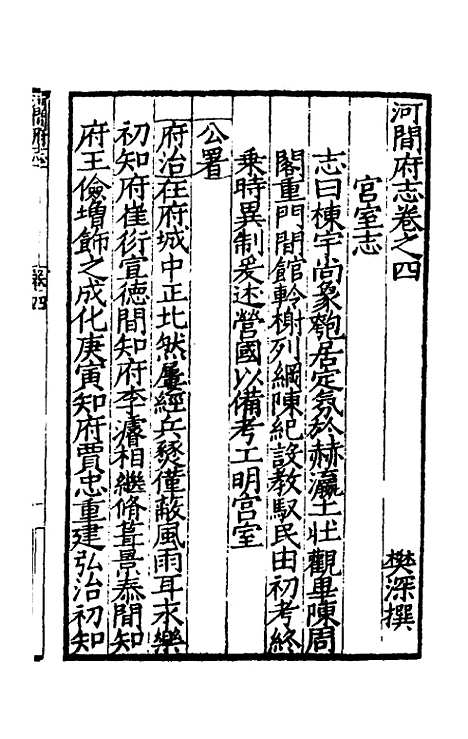 河間府志卷之四 樊深撰
宮室志
志曰棟宇尚象麭居定氛於赫瀛土壯觀畢陳周
閣重門閈館軨榭列綱陳紀設教馭民由初考終
乗時異制爰述營國以備考工明宮室
公署
府治在府城中正北然屢經兵燹僅蔽風雨耳永樂
初知府崔衍宣德間知府李濬相繼脩葺景泰間知
府王儉增飾之成化庚寅知府賈忠重建弘治初知
河間府志 卷四